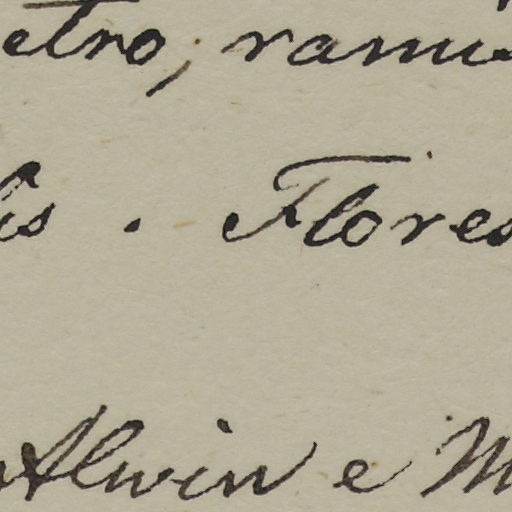 etro, rami
lis. Flores
Alwin e M